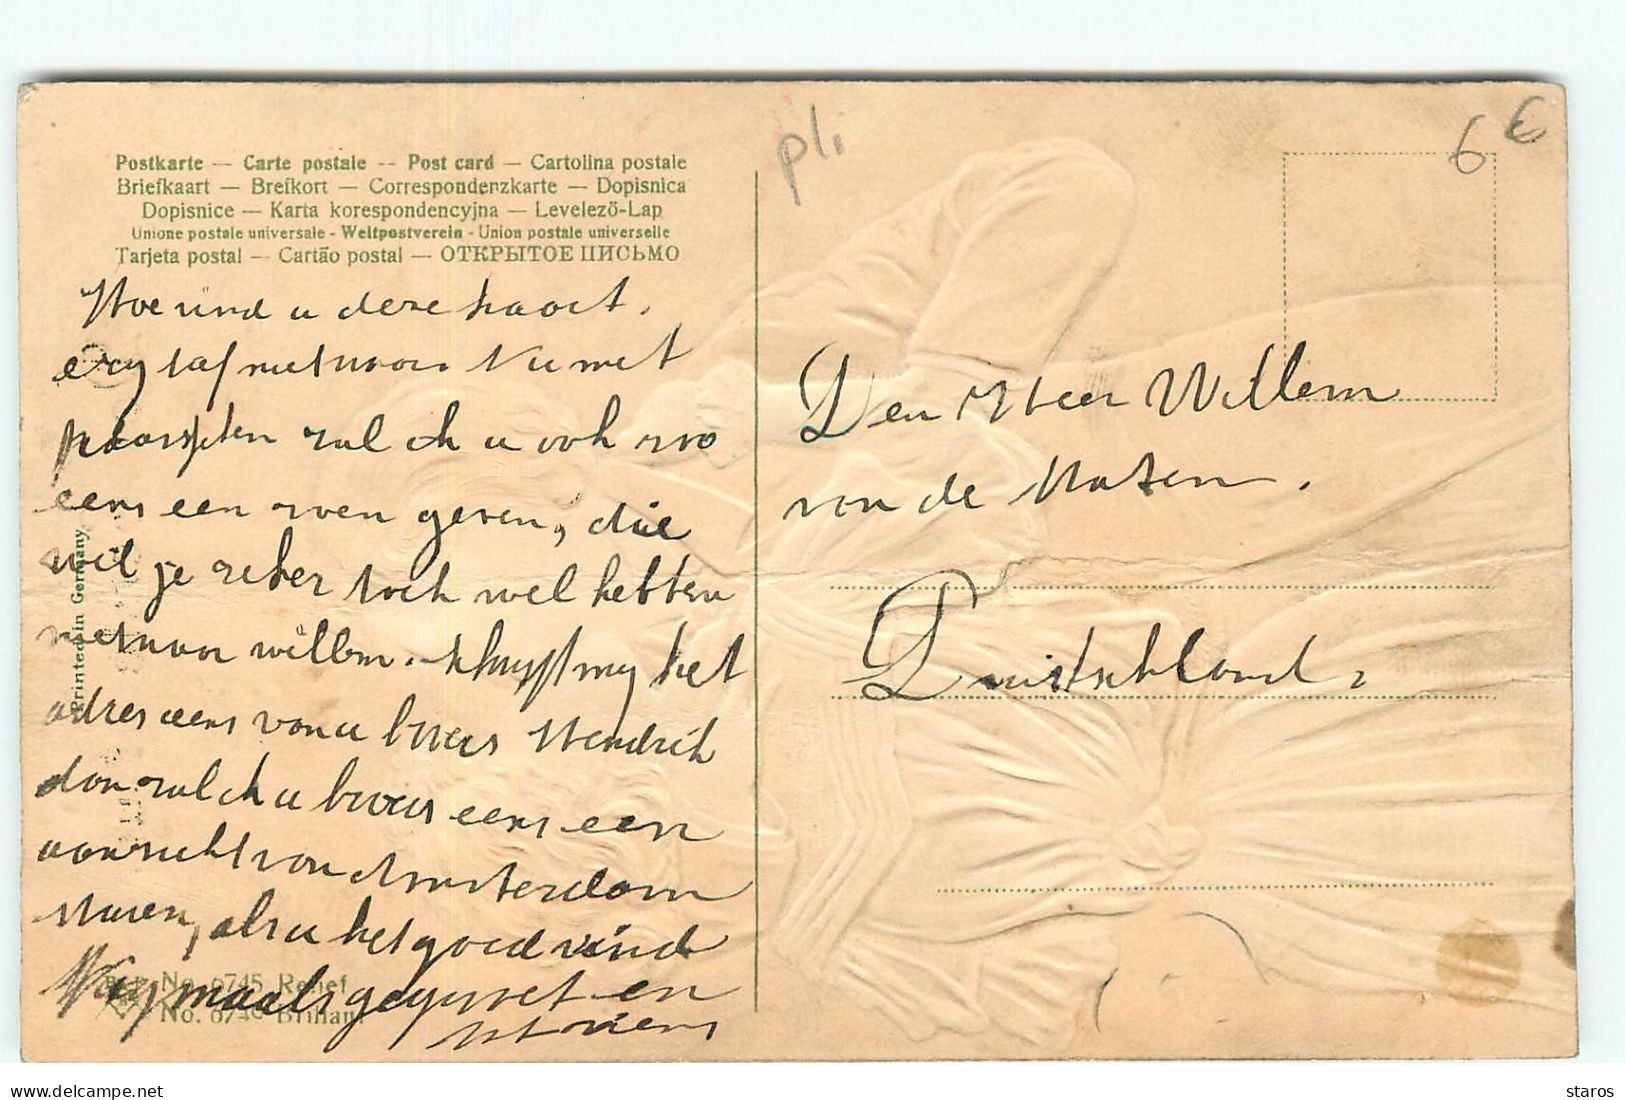 Postkarte — Carte postale -- Post card — Cartolina postale
Briefkaart — Brefkort — Correspondenzkarte — Dopisnica
Dopisnice — Karta korespondencyjna — Levelező-Lap
Unione postale universale - Weltpostverein - Union postale universelle
Tarjeta postal — Cartão postal — ОТКРЫТОЕ ПИСЬМО
pli
6 €
Hoe vind u deze kaart.
erg laf niet waar Nu met
paaschen zal ik u ook zoo
eens een zoen geven, die
wil je zeker toch wel hebben
niet waar willem. schryft my het
adres eens van u broer Hendrik
dan zal ik u broer eens een
aanzicht van Amsterdam
sturen, als u het goed vind
maals gegroet en
Printed in Germany
No. 6745 Relief
No. 6746 Brillant
Den Heer Willem
van de
Duitschland,
staros